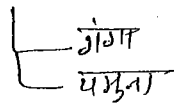 गंगा
यमुना